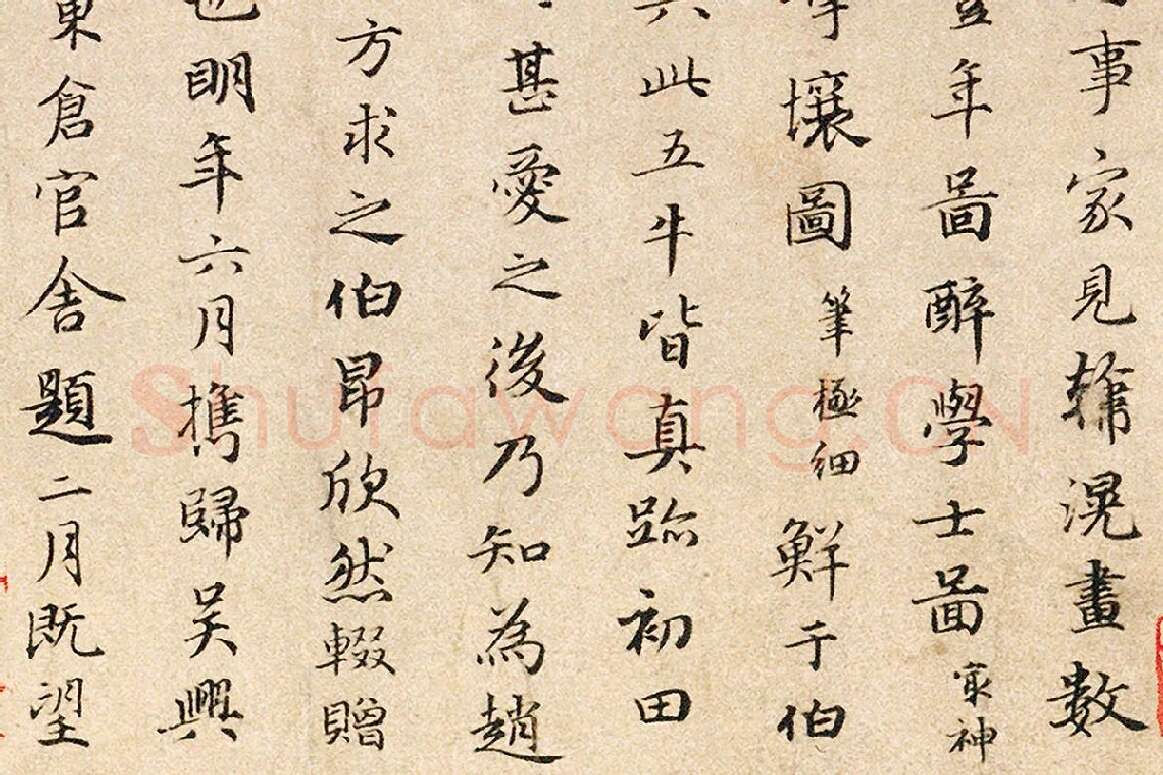 事家見韓滉畫數
豐年啚醉學士啚 冣神
壤圖 筆極細 鮮于伯
此五牛皆真跡初田
甚愛之後乃知為趙
方求之伯昂欣然輟贈
也明年六月攜歸吳興
東倉官舍題二月既望
Shufawang.CN